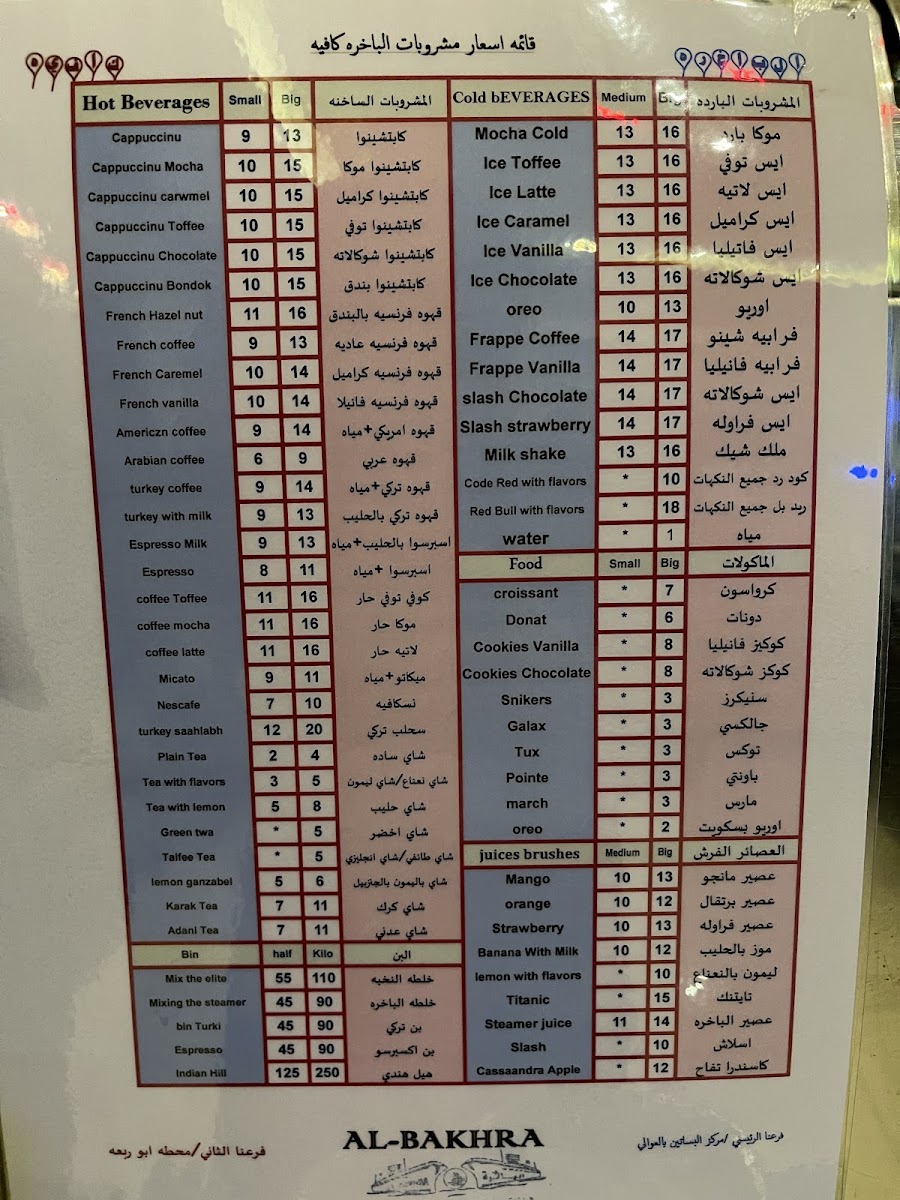 قائمه اسعار مشروبات الباخره كافيه
الباخره
كافيه
Hot Beverages Small Big المشروبات الساخنه
Cappuccinu 9 13 كابتشينوا
Cappuccinu Mocha 10 15 كابتشينوا موكا
Cappuccinu carwmel 10 15 كابتشينوا كراميل
Cappuccinu Toffee 10 15 كابتشينوا توفي
Cappuccinu Chocolate 10 15 كابتشينوا شوكالاته
Cappuccinu Bondok 10 15 كابتشينوا بندق
French Hazel nut 11 16 قهوه فرنسيه بالبندق
French coffee 9 13 قهوه فرنسيه عاديه
French Caremel 10 14 قهوه فرنسيه كراميل
French vanilla 10 14 قهوه فرنسيه فانيلا
Americzn coffee 9 14 قهوه امريكي+مياه
Arabian coffee 6 9 قهوه عربي
turkey coffee 9 14 قهوه تركي+مياه
turkey with milk 9 13 قهوه تركي بالحليب
Espresso Milk 9 13 اسبرسوا بالحليب+مياه
Espresso 8 11 اسبرسوا +مياه
coffee Toffee 11 16 كوفي توفي حار
coffee mocha 11 16 موكا حار
coffee latte 11 16 لاتيه حار
Micato 9 11 ميكاتو+مياه
Nescafe 7 10 نسكافيه
turkey saahlabh 12 20 سحلب تركي
Plain Tea 2 4 شاي ساده
Tea with flavors 3 5 شاي نعناع/شاي ليمون
Tea with lemon 5 8 شاي حليب
Green twa * 5 شاي اخضر
Taifee Tea * 5 شاي طائفي/شاي انجليزي
lemon ganzabel 5 6 شاي باليمون بالجنزبيل
Karak Tea 7 11 شاي كرك
Adani Tea 7 11 شاي عدني
Bin half Kilo البن
Mix the elite 55 110 خلطه النخبه
Mixing the steamer 45 90 خلطه الباخره
bin Turki 45 90 بن تركي
Espresso 45 90 بن اكسبرسو
Indian Hill 125 250 هيل هندي
Cold bEVERAGES Medium Big المشروبات البارده
Mocha Cold 13 16 موكا بارد
Ice Toffee 13 16 ايس توفي
Ice Latte 13 16 ايس لاتيه
Ice Caramel 13 16 ايس كراميل
Ice Vanilla 13 16 ايس فاتيليا
Ice Chocolate 13 16 ايس شوكالاته
oreo 10 13 اوريو
Frappe Coffee 14 17 فرابيه شينو
Frappe Vanilla 14 17 فرابيه فانيليا
slash Chocolate 14 17 ايس شوكالاته
Slash strawberry 14 17 ايس فراوله
Milk shake 13 16 ملك شيك
Code Red with flavors * 10 كود رد جميع النكهات
Red Bull with flavors * 18 ريد بل جميع النكهات
water * 1 مياه
Food Small Big الماكولات
croissant * 7 كرواسون
Donat * 6 دونات
Cookies Vanilla * 8 كوكيز فانيليا
Cookies Chocolate * 8 كوكز شوكالاته
Snikers * 3 سنيكرز
Galax * 3 جالكسي
Tux * 3 توكس
Pointe * 3 باونتي
march * 3 مارس
oreo * 2 اوريو بسكويت
juices brushes Medium Big العصائر الفرش
Mango 10 13 عصير مانجو
orange 10 12 عصير برتقال
Strawberry 10 13 عصير فراوله
Banana With Milk 10 12 موز بالحليب
lemon with flavors * 10 ليمون بالنعناع
Titanic * 15 تايتنك
Steamer juice 11 14 عصير الباخره
Slash * 10 اسلاش
Cassaandra Apple * 12 كاسندرا تفاح
فرعنا الرئيسي /مركز البساتين بالعوالي
AL-BAKHRA
فرعنا الثاني/محطه ابو ربعه